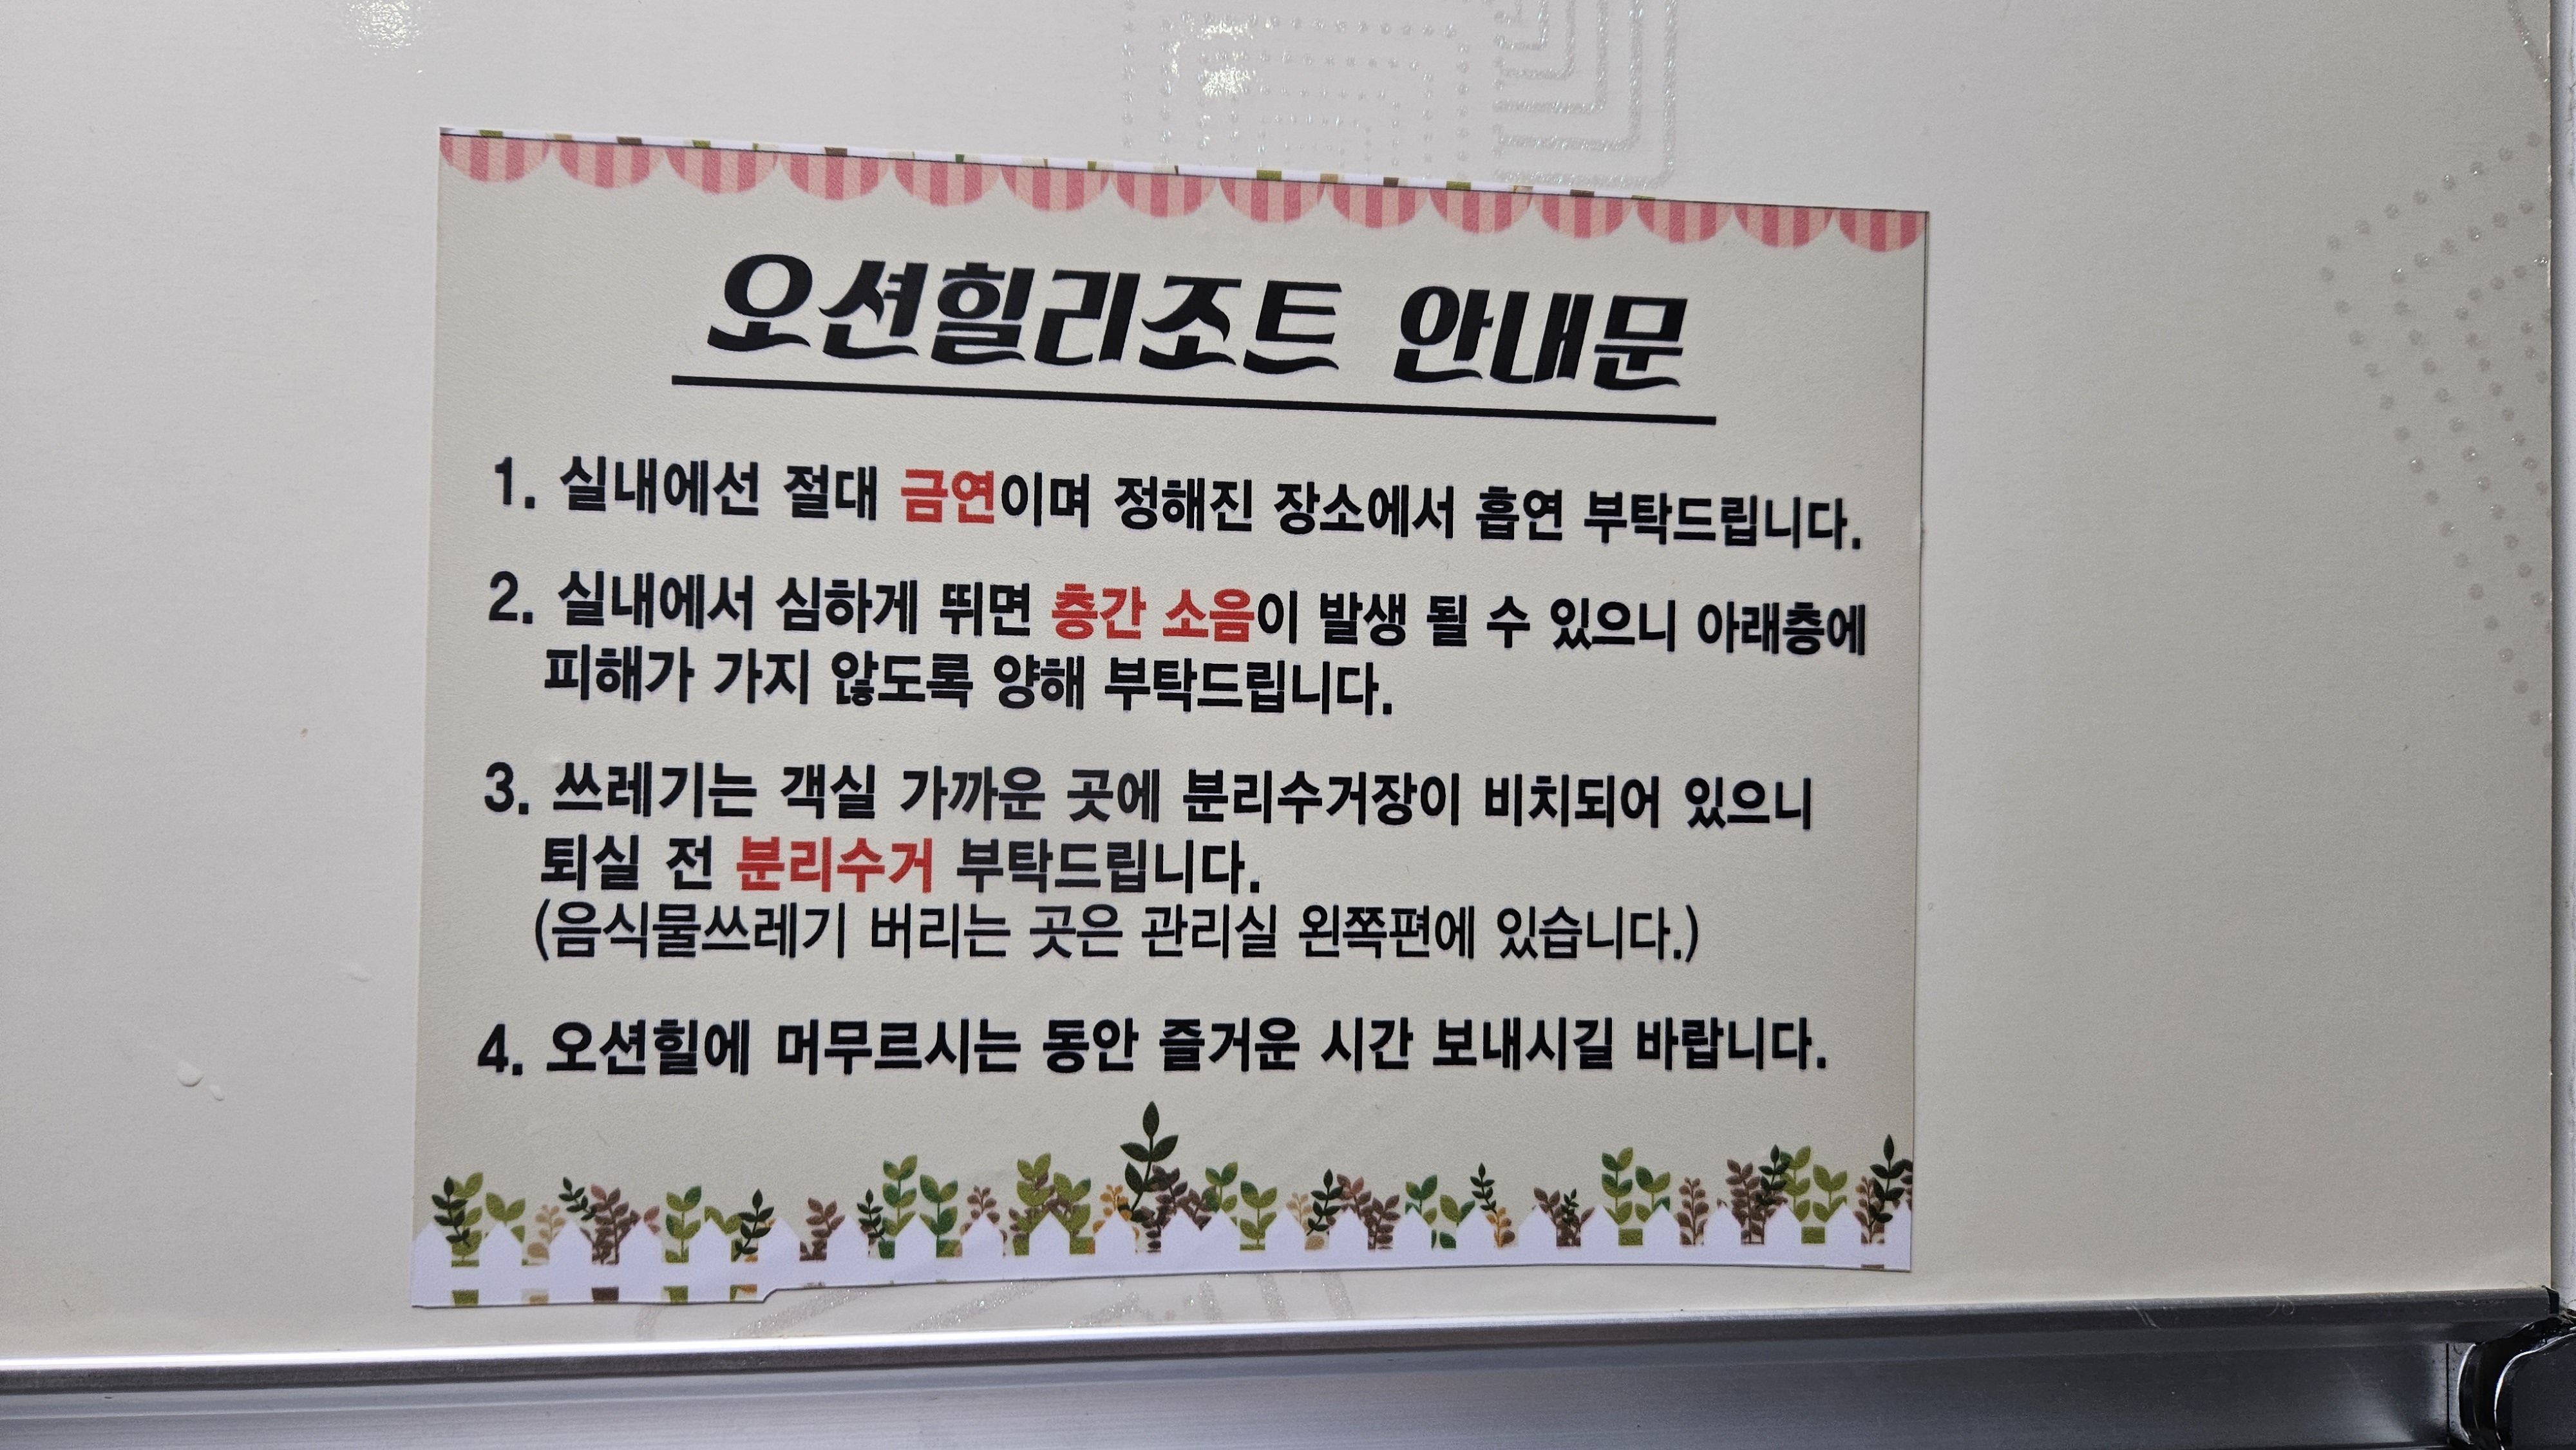 오션힐리조트 안내문
1. 실내에선 절대 금연이며 정해진 장소에서 흡연 부탁드립니다.
2. 실내에서 심하게 뛰면 층간 소음이 발생 될 수 있으니 아래층에
피해가 가지 않도록 양해 부탁드립니다.
3. 쓰레기는 객실 가까운 곳에 분리수거장이 비치되어 있으니
퇴실 전 분리수거 부탁드립니다.
(음식물쓰레기 버리는 곳은 관리실 왼쪽편에 있습니다.)
4. 오션힐에 머무르시는 동안 즐거운 시간 보내시길 바랍니다.